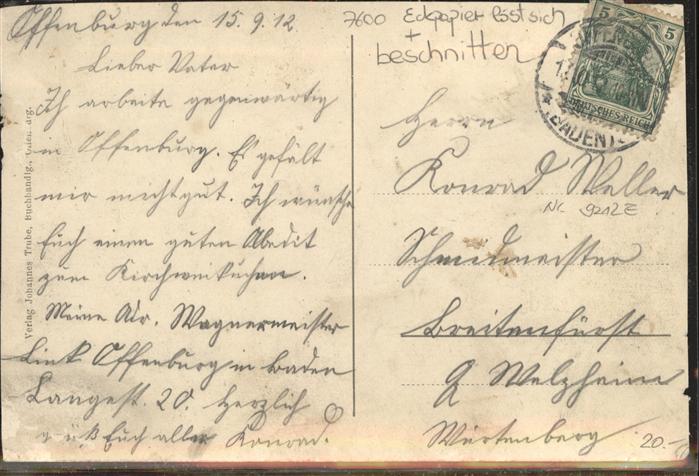 Offenburg den 15.9.12
Lieber Vater
Ich arbeite gegenwärtig
in Offenburg. Es gefält
mir nicht gut. Ich wünsche
Euch einen guten Abedit
zum Kirchweikuchen.
Meine Adr. Wagnermeister
Link Offenburg in Baden
Langest. 20. Herzlich
grüßt Euch alle Konrad.
Verlag Johannes Trube, Buchhandlg., Offenburg.
7600 Eckpapier löst sich
+
beschnitten
5 5
DEUTSCHES REICH
(BADEN)
Herrn
Konrad Weller
Nr. 9212E
Schmidmeister
Breitenfürst
Welzheim
Würtenberg
20.-